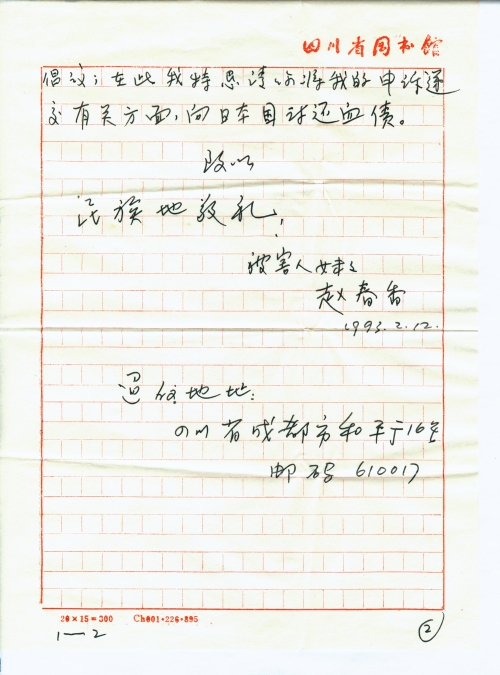 四川省图书馆
倡议；在此我特恳请你将我的申诉递
交有关方面，向日本国讨还血债。
致以
民族地敬礼！
被害人妹妹
赵春香
1993.2.12.
通信地址：
四川省成都市和平街16号
邮码 610017
20×15=300 Ch001·226·895
1—2
②